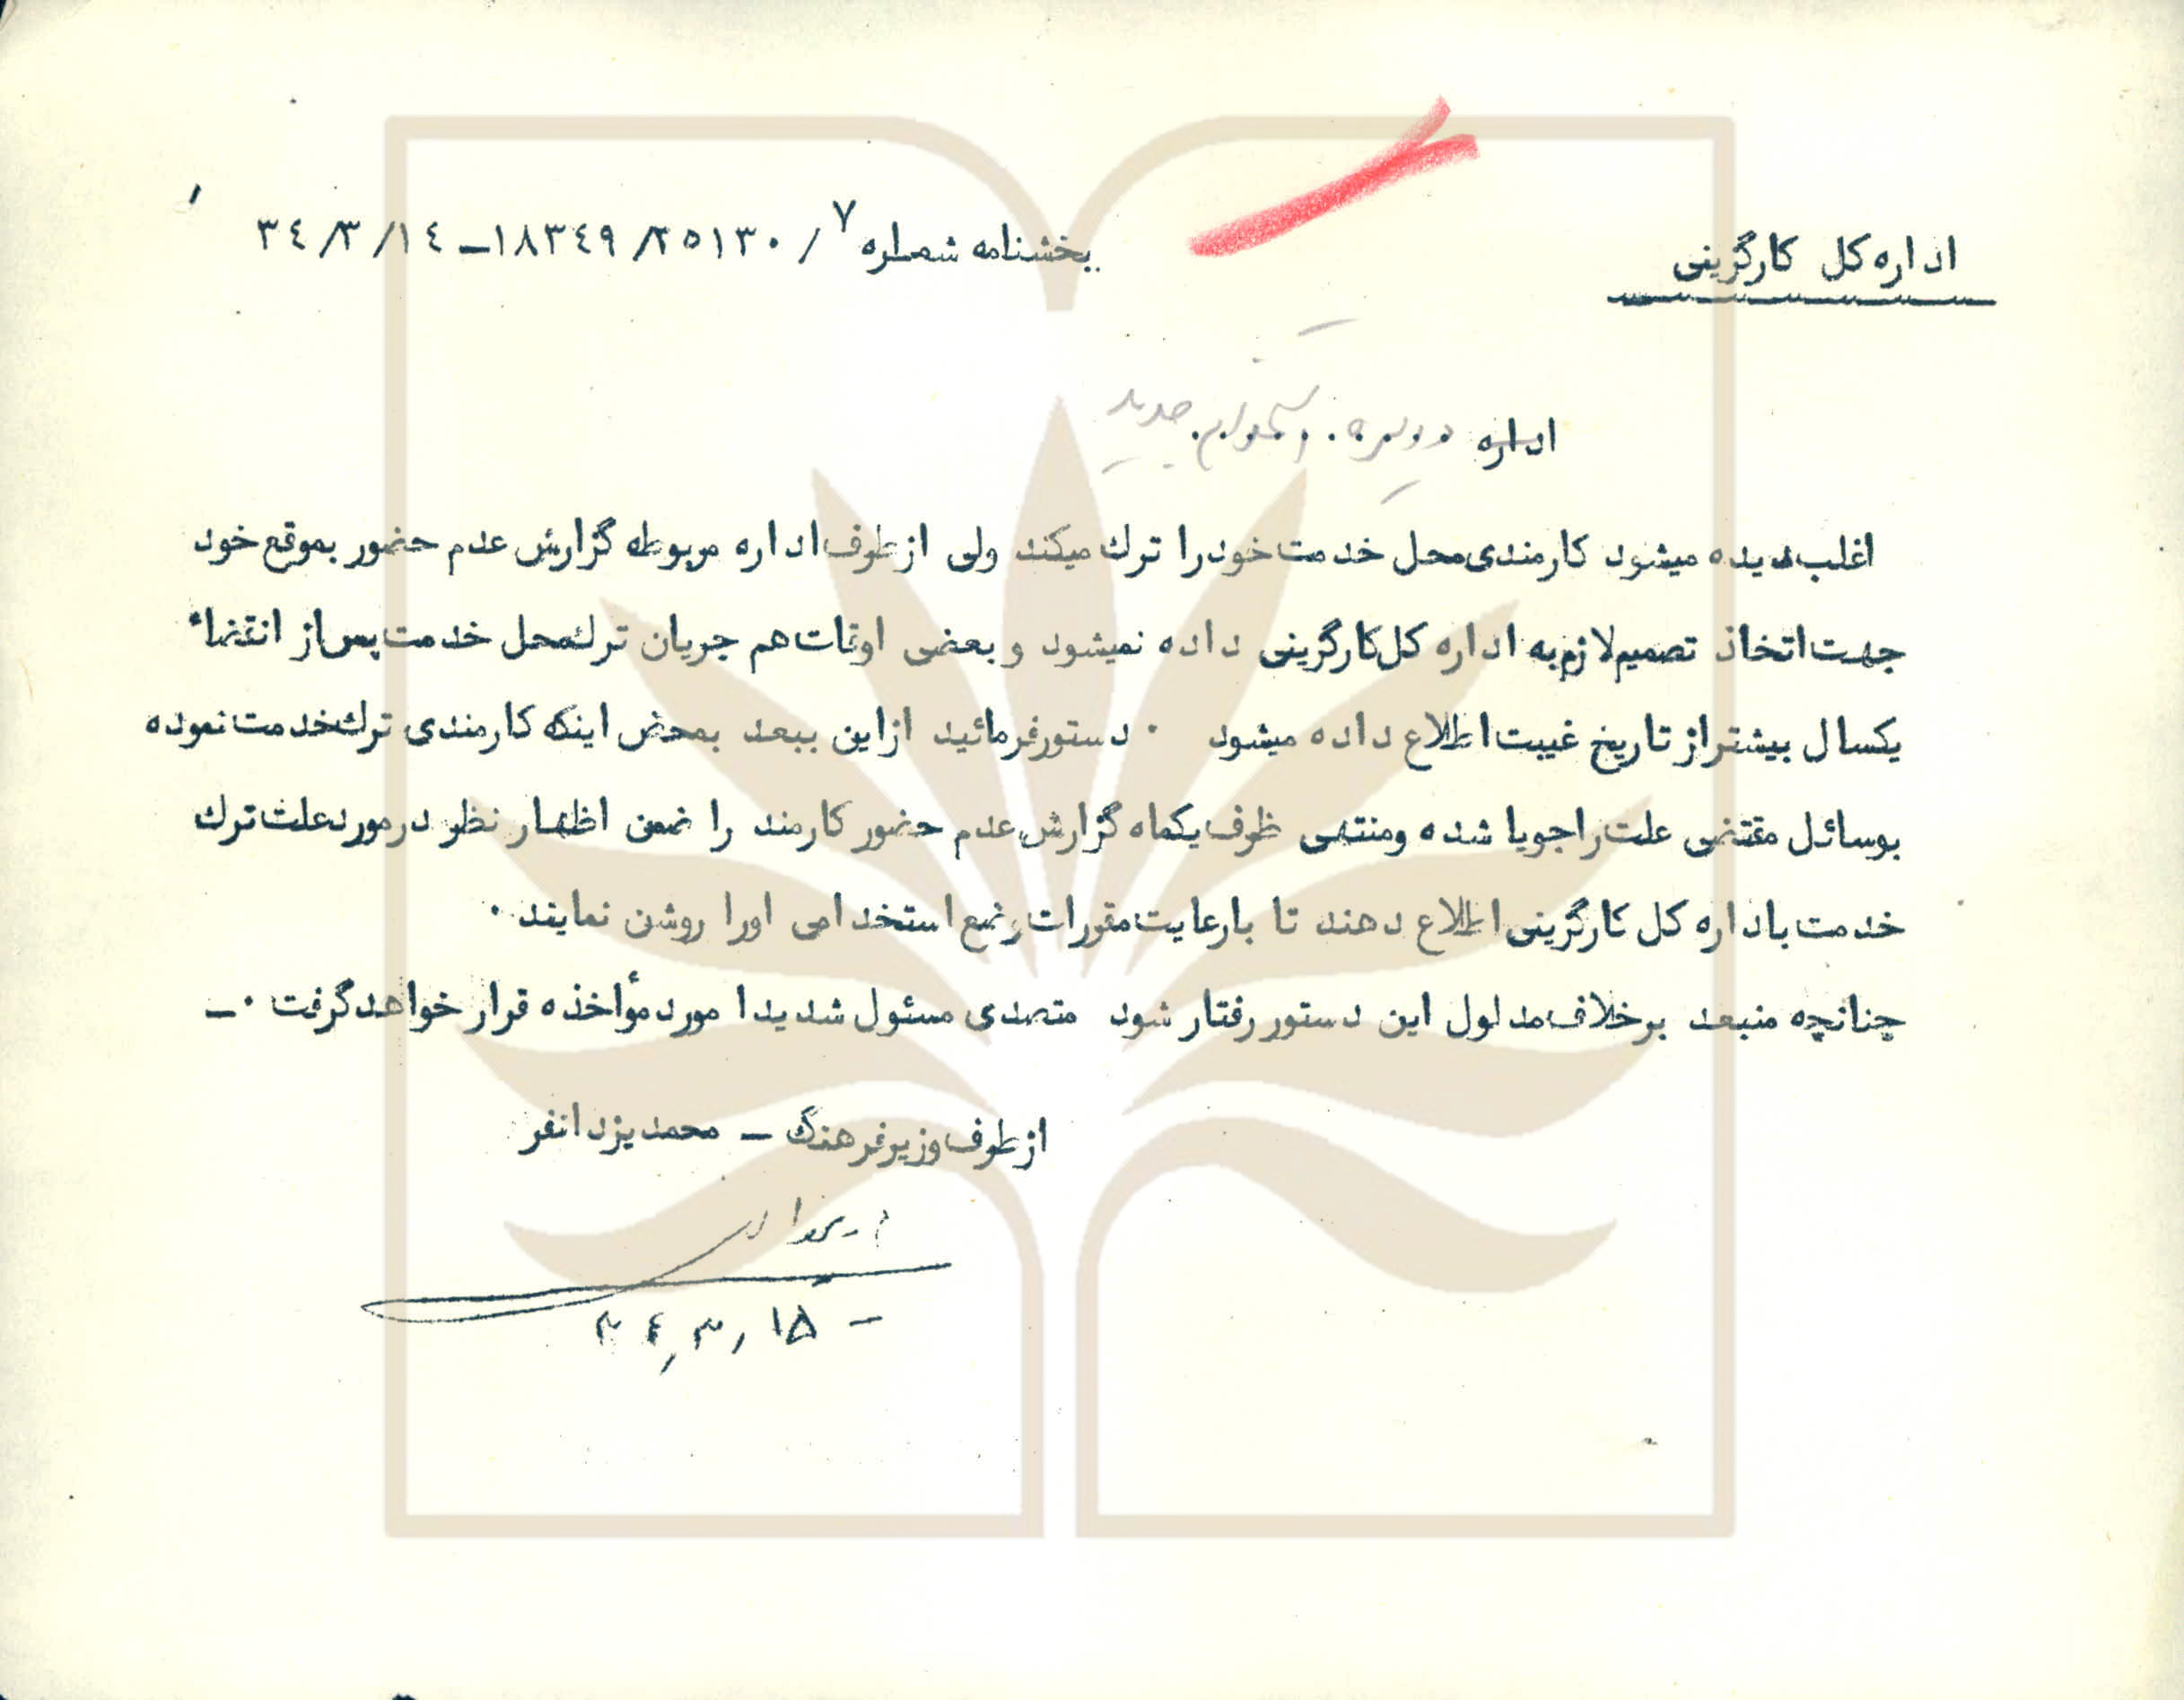 اداره کل کارگزینی
بخشنامه شماره ۷ / ۱۸۳۴۹/۲۵۱۳۰ــ۳۴/۳/۱۴
اداره
اغلب دیده میشود کارمندی محل خدمت خود را ترك میکند ولی از طرف اداره مربوطه گزارش عدم حضور بموقع خود
جهت اتخاذ تصمیم لازم به اداره کل کارگزینی داده نمیشود و بعضی اوقات هم جریان ترك محل خدمت پس از انقضاء
یکسال بیشتر از تاریخ غیبت اطلاع داده میشود ۰ دستور فرمائید از این ببعد بمحض اینکه کارمندی ترك خدمت نموده
بوسائل مقتضی علت را جویا شده ومنتهی ظرف یکماه گزارش عدم حضور کارمند را ضمن اظهار نظر در مورد علت ترك
خدمت باداره کل کارگزینی اطلاع دهند تا بارعایت مقررات وضع استخدامی اورا روشن نمایند ۰
چنانچه منبعد برخلاف مدلول این دستور رفتار شود متصدی مسئول شدیدا مورد مؤاخذه قرار خواهد گرفت ۰ــ
از طرف وزیر فرهنگ ــ محمد یزدانفر
۳۴٫۳٫۱۵ -